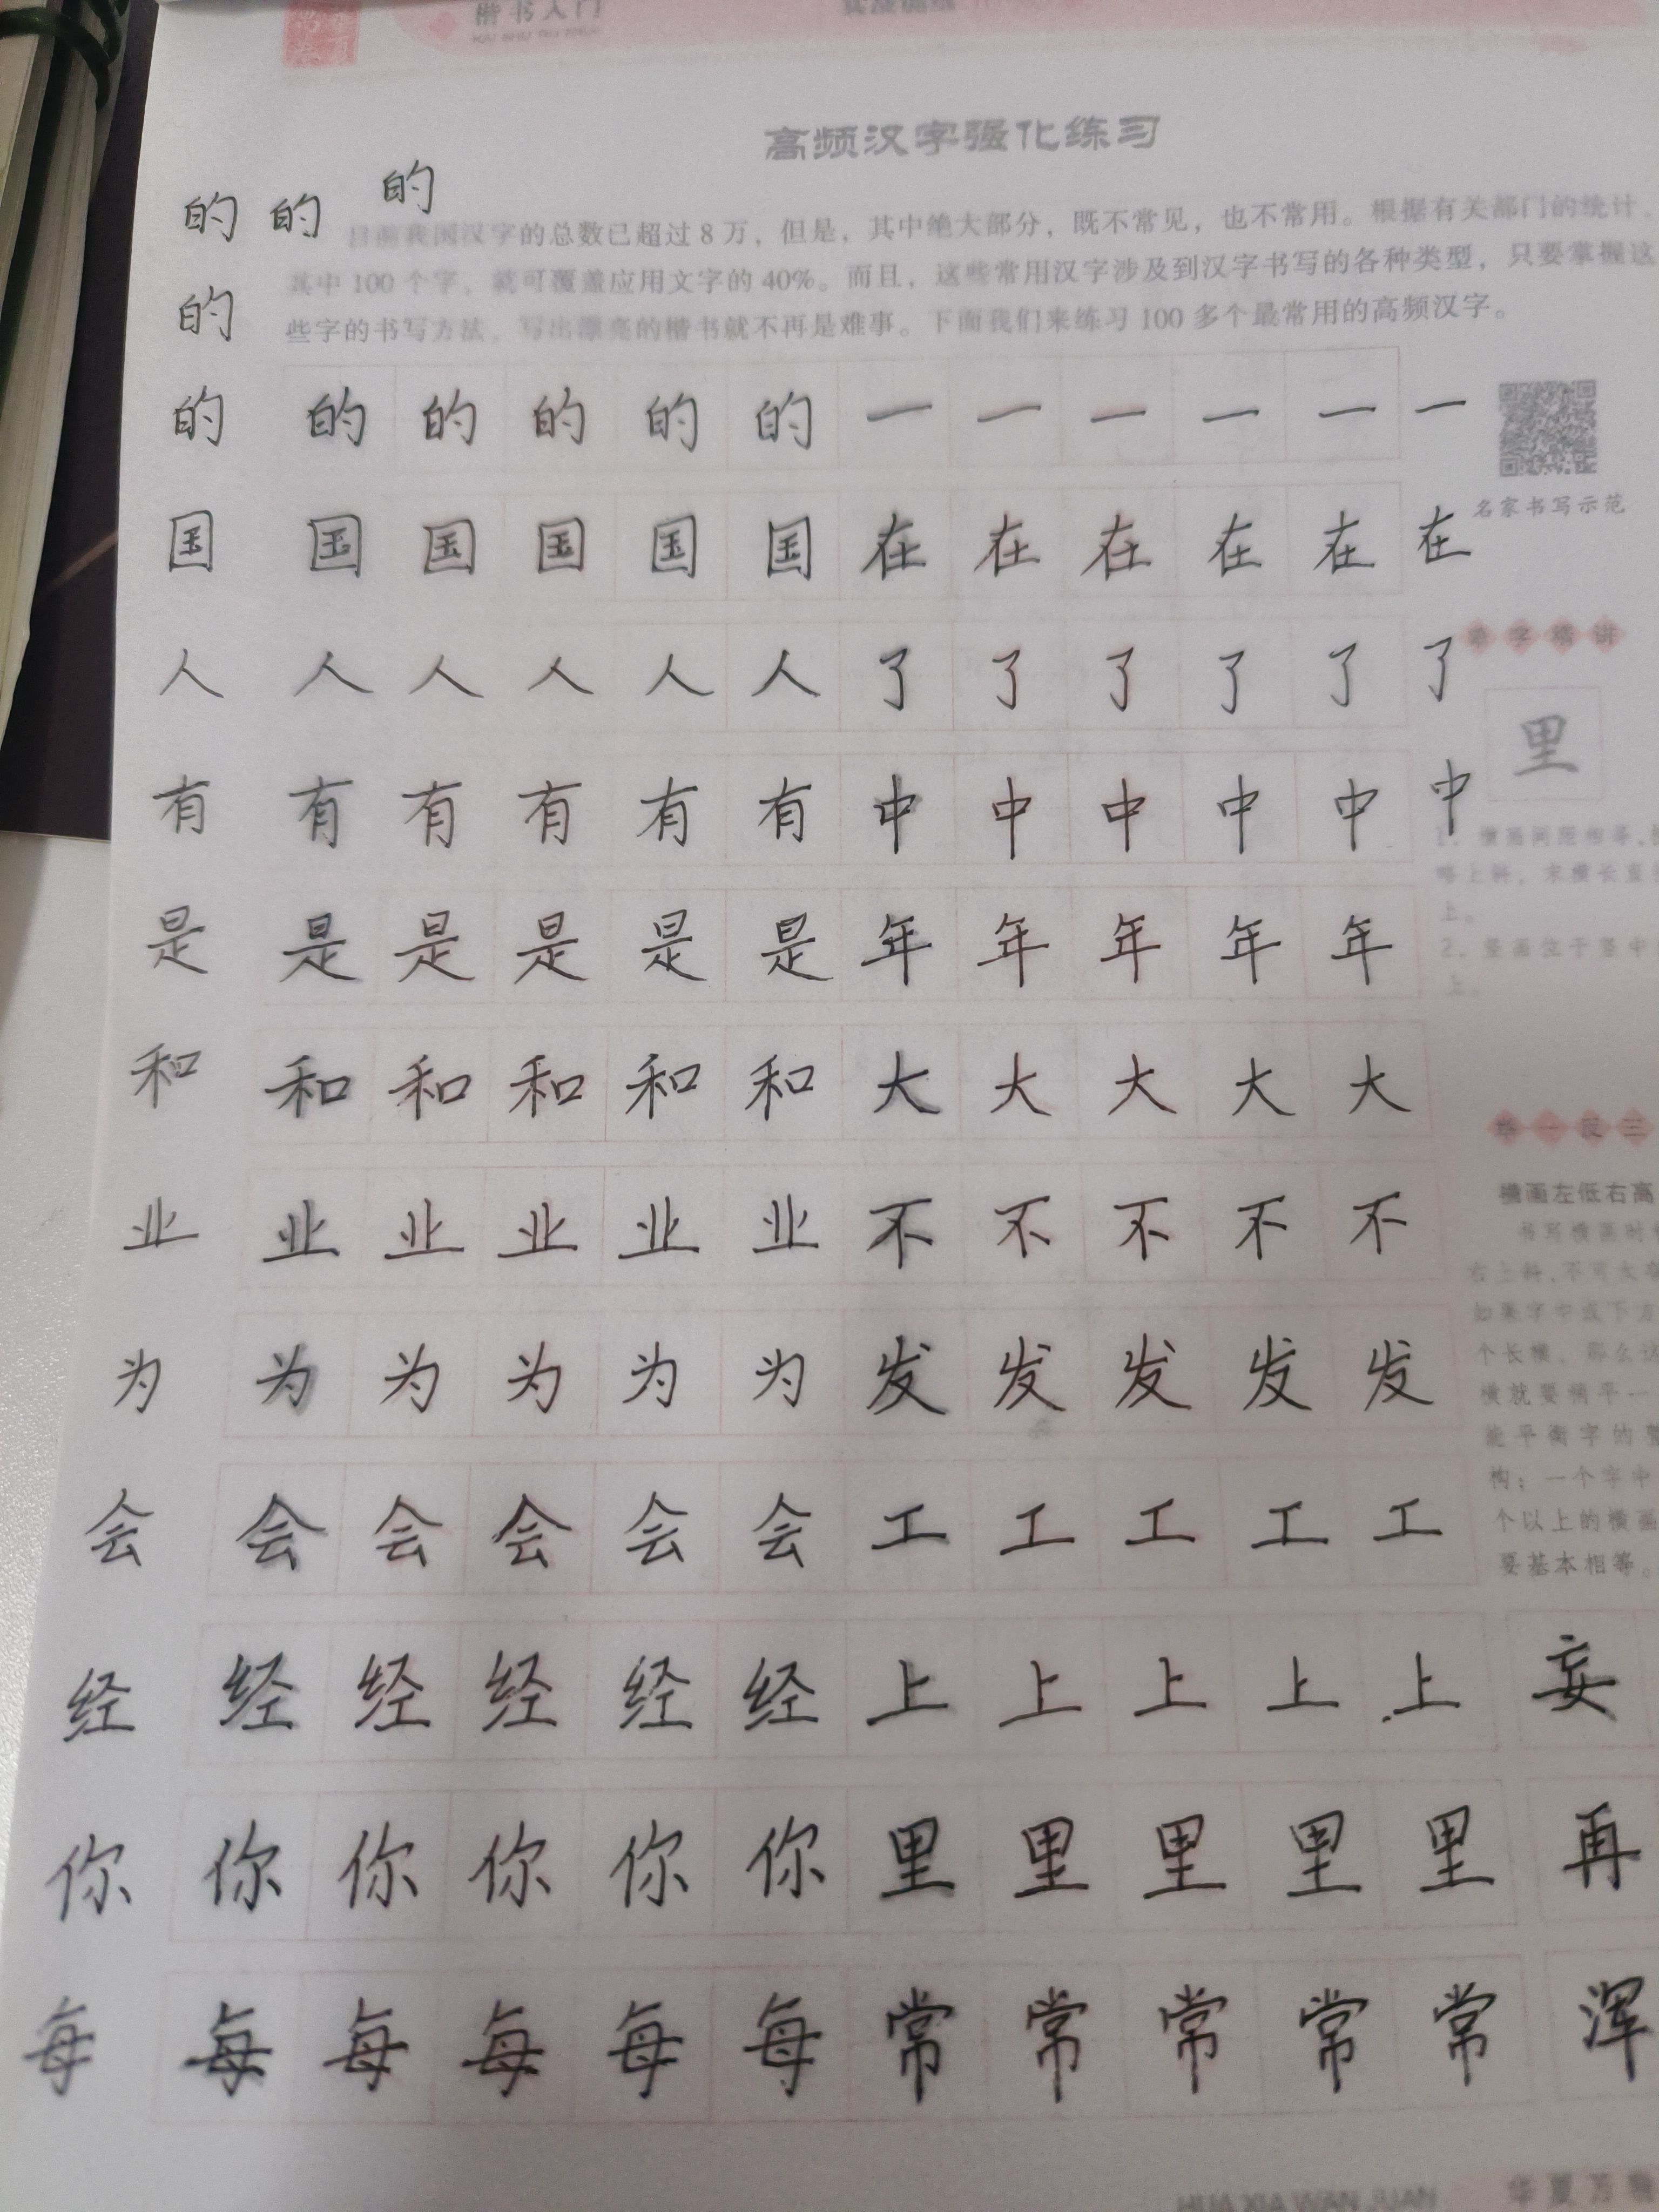 楷书入门
实战训练
高频汉字强化练习
的 的 的
目前我国汉字的总数已超过8万，但是，其中绝大部分，既不常见，也不常用。根据有关部门的统计，
的
其中100个字，就可覆盖应用文字的40%。而且，这些常用汉字涉及到汉字书写的各种类型，只要掌握这
些字的书写方法，写出漂亮的楷书就不再是难事。下面我们来练习100多个最常用的高频汉字。
的 的 的 的 的 的 一 一 一 一 一 一
名家书写示范
国 国 国 国 国 国 在 在 在 在 在 在
人 人 人 人 人 人 了 了 了 了 了 了
单字精讲
里
有 有 有 有 有 有 中 中 中 中 中 中
1. 横画间距相等，
略上斜，末横长且
上。
是 是 是 是 是 是 年 年 年 年 年
2. 竖画位于竖中
上。
和 和 和 和 和 和 大 大 大 大 大
举一反三
横画左低右高
业 业 业 业 业 业 不 不 不 不 不
书写横画时
右上斜，不可太
如果字中或下方
个长横，那么这
横就要稍平一
能平衡字的整
构；一个字中
个以上的横画
要基本相等。
为 为 为 为 为 为 发 发 发 发 发
会 会 会 会 会 会 工 工 工 工 工
经 经 经 经 经 经 上 上 上 上 上 妄
你 你 你 你 你 你 里 里 里 里 里 再
每 每 每 每 每 每 常 常 常 常 常 浑
HUA XIA WAN JUAN
华夏万卷